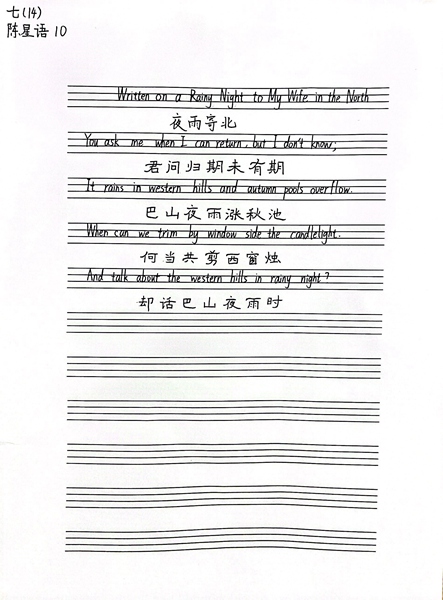 七(14)
陈星语 10
Written on a Rainy Night to My Wife in the North
夜雨寄北
You ask me when I can return, but I don't know;
君问归期未有期
It rains in western hills and autumn pools overflow.
巴山夜雨涨秋池
When can we trim by window side the candlelight.
何当共剪西窗烛
And talk about the western hills in rainy night?
却话巴山夜雨时